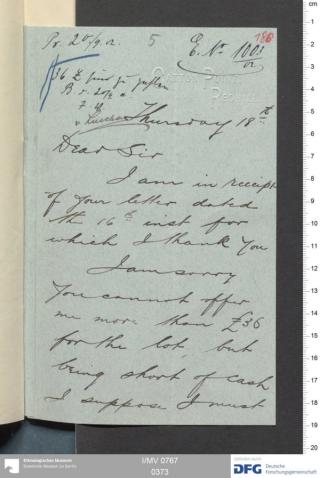 Pr. 20/9. 02.   5   E. No 1003/02
180
36 £ sind zu zahlen
Thursday 18th
Dear Sir
I am in receipt
of your letter dated
the 16th inst for
which I thank you
I am sorry
you cannot offer
me more than £36
for the lot, but
being short of cash
I suppose I must
cm
0
1
2
3
4
5
6
7
8
9
10
11
12
13
14
15
16
17
18
19
20
Ethnologisches Museum
Staatliche Museen zu Berlin
I/MV 0767
0373
gefördert durch
DFG Deutsche
Forschungsgemeinschaft